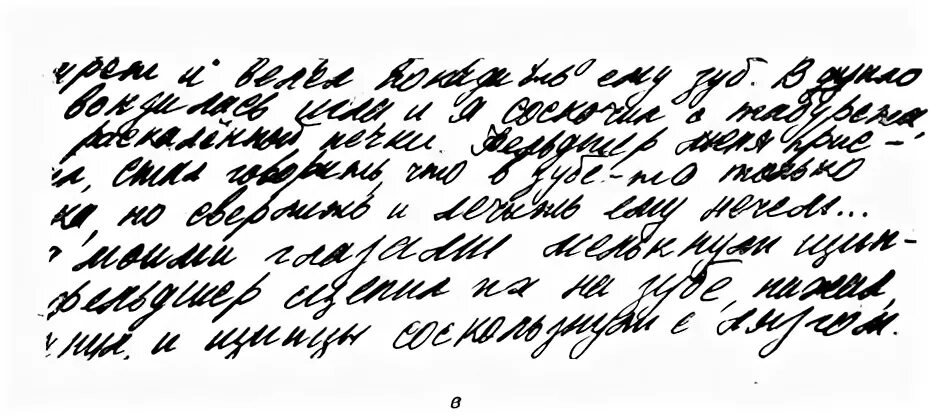 и велел показать ему зуб. В дупло
вонзилась игла и я соскочил с табурета,
раскалённой печки. Фельдшер меня прис-
стал говорить, что в зубе-то только
но сверлить и лечить ему нечем...
моими глазами мелькнули щип-
фельдшер сцепил их на зубе, нажал,
и щипцы соскользнули с лязгом.
в